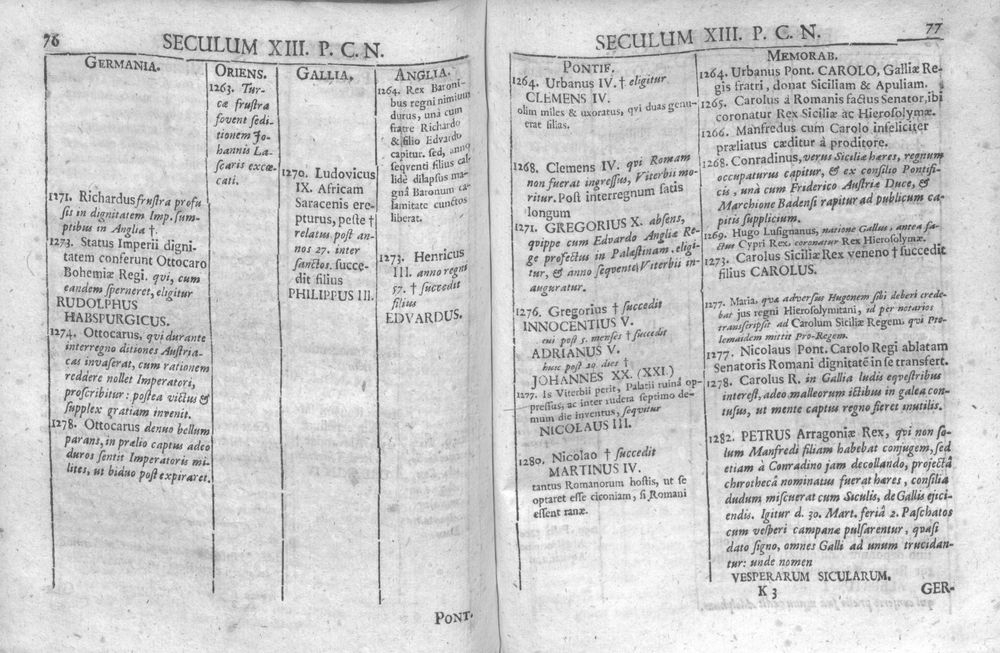 76
SECULUM XIII. P. C. N.
GERMANIA.
1271. Richardus frustra profu
sit in dignitatem Imp. sum-
ptibus in Anglia †.
1273. Status Imperii digni-
tatem conferunt Ottocaro
Bohemiæ Regi. qvi, cum
eandem sperneret, eligitur
RUDOLPHUS
HABSPURGICUS.
1274. Ottocarus, qvi durante
interregno ditiones Austria-
cas invaserat, cum rationem
reddere nollet Imperatori,
proscribitur: postea victus &
supplex gratiam invenit.
1278. Ottocarus denuo bellum
parans, in prælio captus adeo
duros sentit Imperatoris mi-
lites, ut biduo post expiraret.
ORIENS.
1263. Tur-
cæ frustra
fovent sedi-
tionem Jo-
hannis La-
scaris excœ-
cati.
GALLIA.
1270. Ludovicus
IX. Africam
Saracenis ere-
pturus, peste †
relatus post an-
nos 27. inter
sanctos. succe-
dit filius
PHILIPPUS III.
ANGLIA.
1264. Rex Baroni-
bus regni nimium
durus, unà cum
fratre Richardo
& filio Edvardo
capitur. sed, anno
seqventi filius cal-
lidè dilapsus ma-
gnâ Baronum ca-
lamitate cunctos
liberat.
1273. Henricus
III. anno regni
57. † succedit
filius
EDVARDUS.
PONT.
77
SECULUM XIII. P. C. N.
PONTIF.
1264. Urbanus IV. † eligitur
CLEMENS IV.
olim miles & uxoratus, qvi duas genu-
erat filias.
1268. Clemens IV. qvi Romam
non fuerat ingressus, Viterbii mo-
ritur. Post interregnum satis
longum
1271. GREGORIUS X. absens,
qvippe cum Edvardo Angliæ Re-
ge profectus in Palæstinam. eligi-
tur, & anno seqvente Viterbii in-
auguratur.
1276. Gregorius † succedit
INNOCENTIUS V.
cui post 5. menses † succedit
ADRIANUS V.
huic post 10. dies †
JOHANNES XX. (XXI.)
1277. Is Viterbii perit, Palatii ruinâ op-
pressus, ac inter rudera septimo de-
mum die inventus, seqvitur
NICOLAUS III.
1280. Nicolao † succedit
MARTINUS IV.
tantus Romanorum hostis, ut se
optaret esse ciconiam, si Romani
essent ranæ.
MEMORAB.
1264. Urbanus Pont. CAROLO, Galliæ Re-
gis fratri, donat Siciliam & Apuliam.
1265. Carolus à Romanis factus Senator, ibi
coronatur Rex Siciliæ ac Hierosolymæ.
1266. Manfredus cum Carolo infeliciter
præliatus cæditur à proditore.
1268. Conradinus, verus Siciliæ hæres, regnum
occupaturus capitur, & ex consilio Pontifi-
cis, unà cum Friderico Austriæ Duce, &
Marchione Badensi rapitur ad publicum ca-
pitis supplicium.
1269. Hugo Lusignanus, natione Gallus, antea fa-
ctus Cypri Rex, coronatur Rex Hierosolymæ.
1273. Carolus Siciliæ Rex veneno † succedit
filius CAROLUS.
1277. Maria, qvæ adversus Hugonem sibi deberi crede-
bat jus regni Hierosolymitani, id per notarios
transscripsit ad Carolum Siciliæ Regem, qvi Pto-
lemaidem mittit Pro-Regem.
1277. Nicolaus Pont. Carolo Regi ablatam
Senatoris Romani dignitatẽ in se transfert.
1278. Carolus R. in Gallia ludis eqvestribus
interest, adeo malleorum ictibus in galea con-
tusus, ut mente captus regno fieret inutilis.
1282. PETRUS Arragoniæ Rex, qvi non so-
lum Manfredi filiam habebat conjugem, sed
etiam à Conradino jam decollando, projectâ
chirothecâ nominatus fuerat hæres, consilia
dudum miscuerat cum Siculis, de Gallis ejici-
endis. Igitur d. 30. Mart. feriâ 2. Paschatos
cum vesperi campanæ pulsarentur, qvasi
dato signo, omnes Galli ad unum trucidan-
tur: unde nomen
VESPERARUM SICULARUM.
K 3
GER-